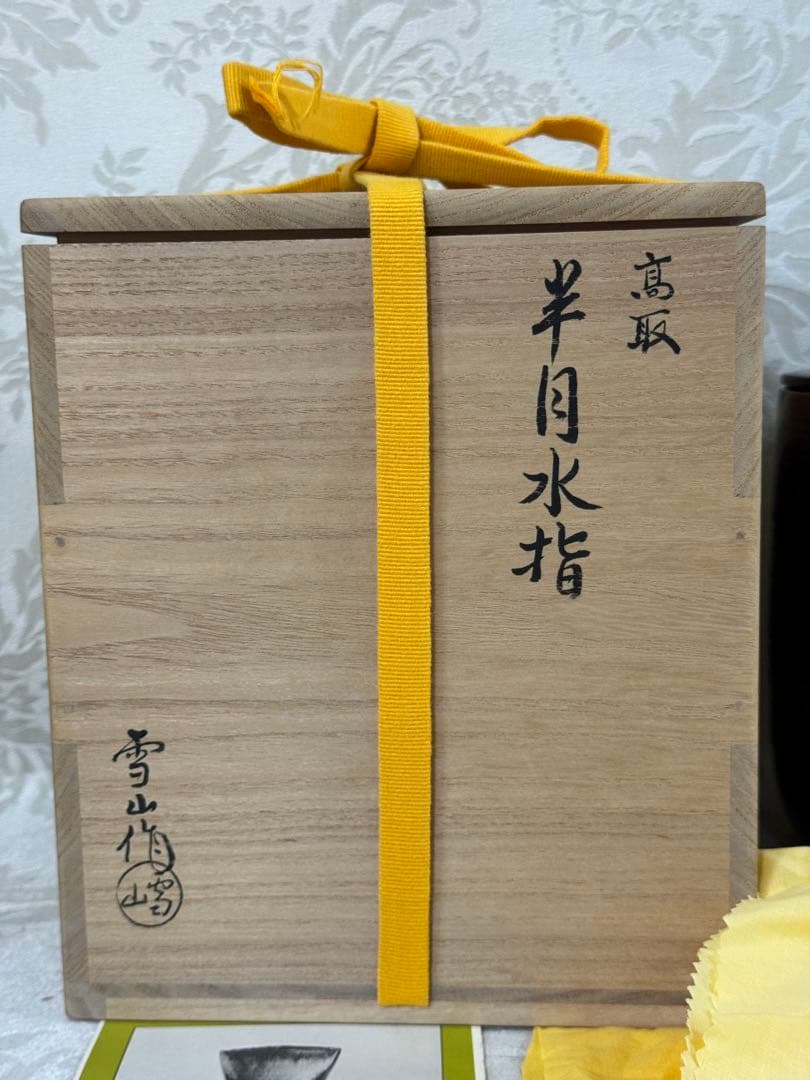 高取
半月水指
雪山作
雪山